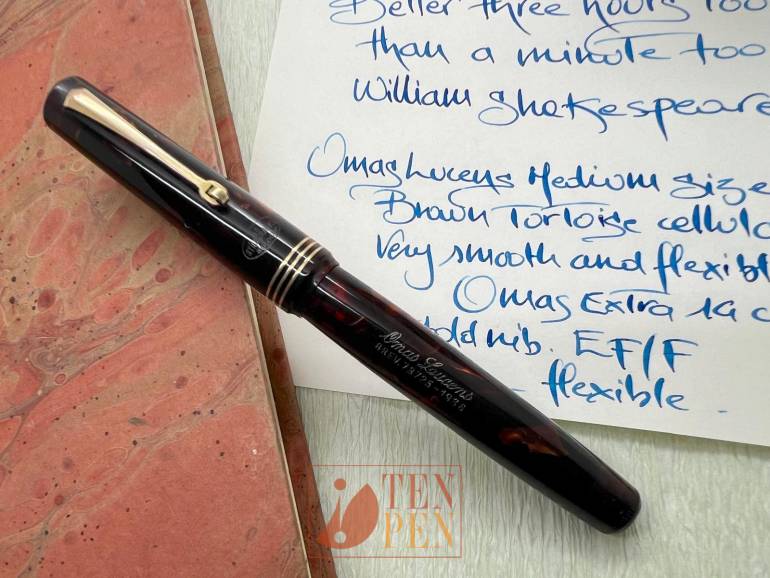 Better three hours too
than a minute too
William Shakespeare
Omas Lucens Medium size
Brown Tortoise cellulo
Very smooth and flexibl
Omas Extra 14 c
old nib. EF/F
- flexible.
Omas Lucens
BREV. 1936
TEN
PEN